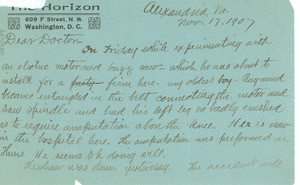 The Horizon
609 F STREET, N. W.
WASHINGTON, D. C.
Alexandria, Va.
Nov. 17, 1907
Dear Doctor
On Friday while experimenting with
an electric motor and buzz saw which he was about to
install for a firm here, my oldest boy Raymond
became entangled in the belt connecting the motor and
saw spindle and had his left leg so badly crushed
as to require amputation above the knee. He is now
in the hospital here. The amputation was performed at
He seems to be doing well.
was down yesterday. The accident will